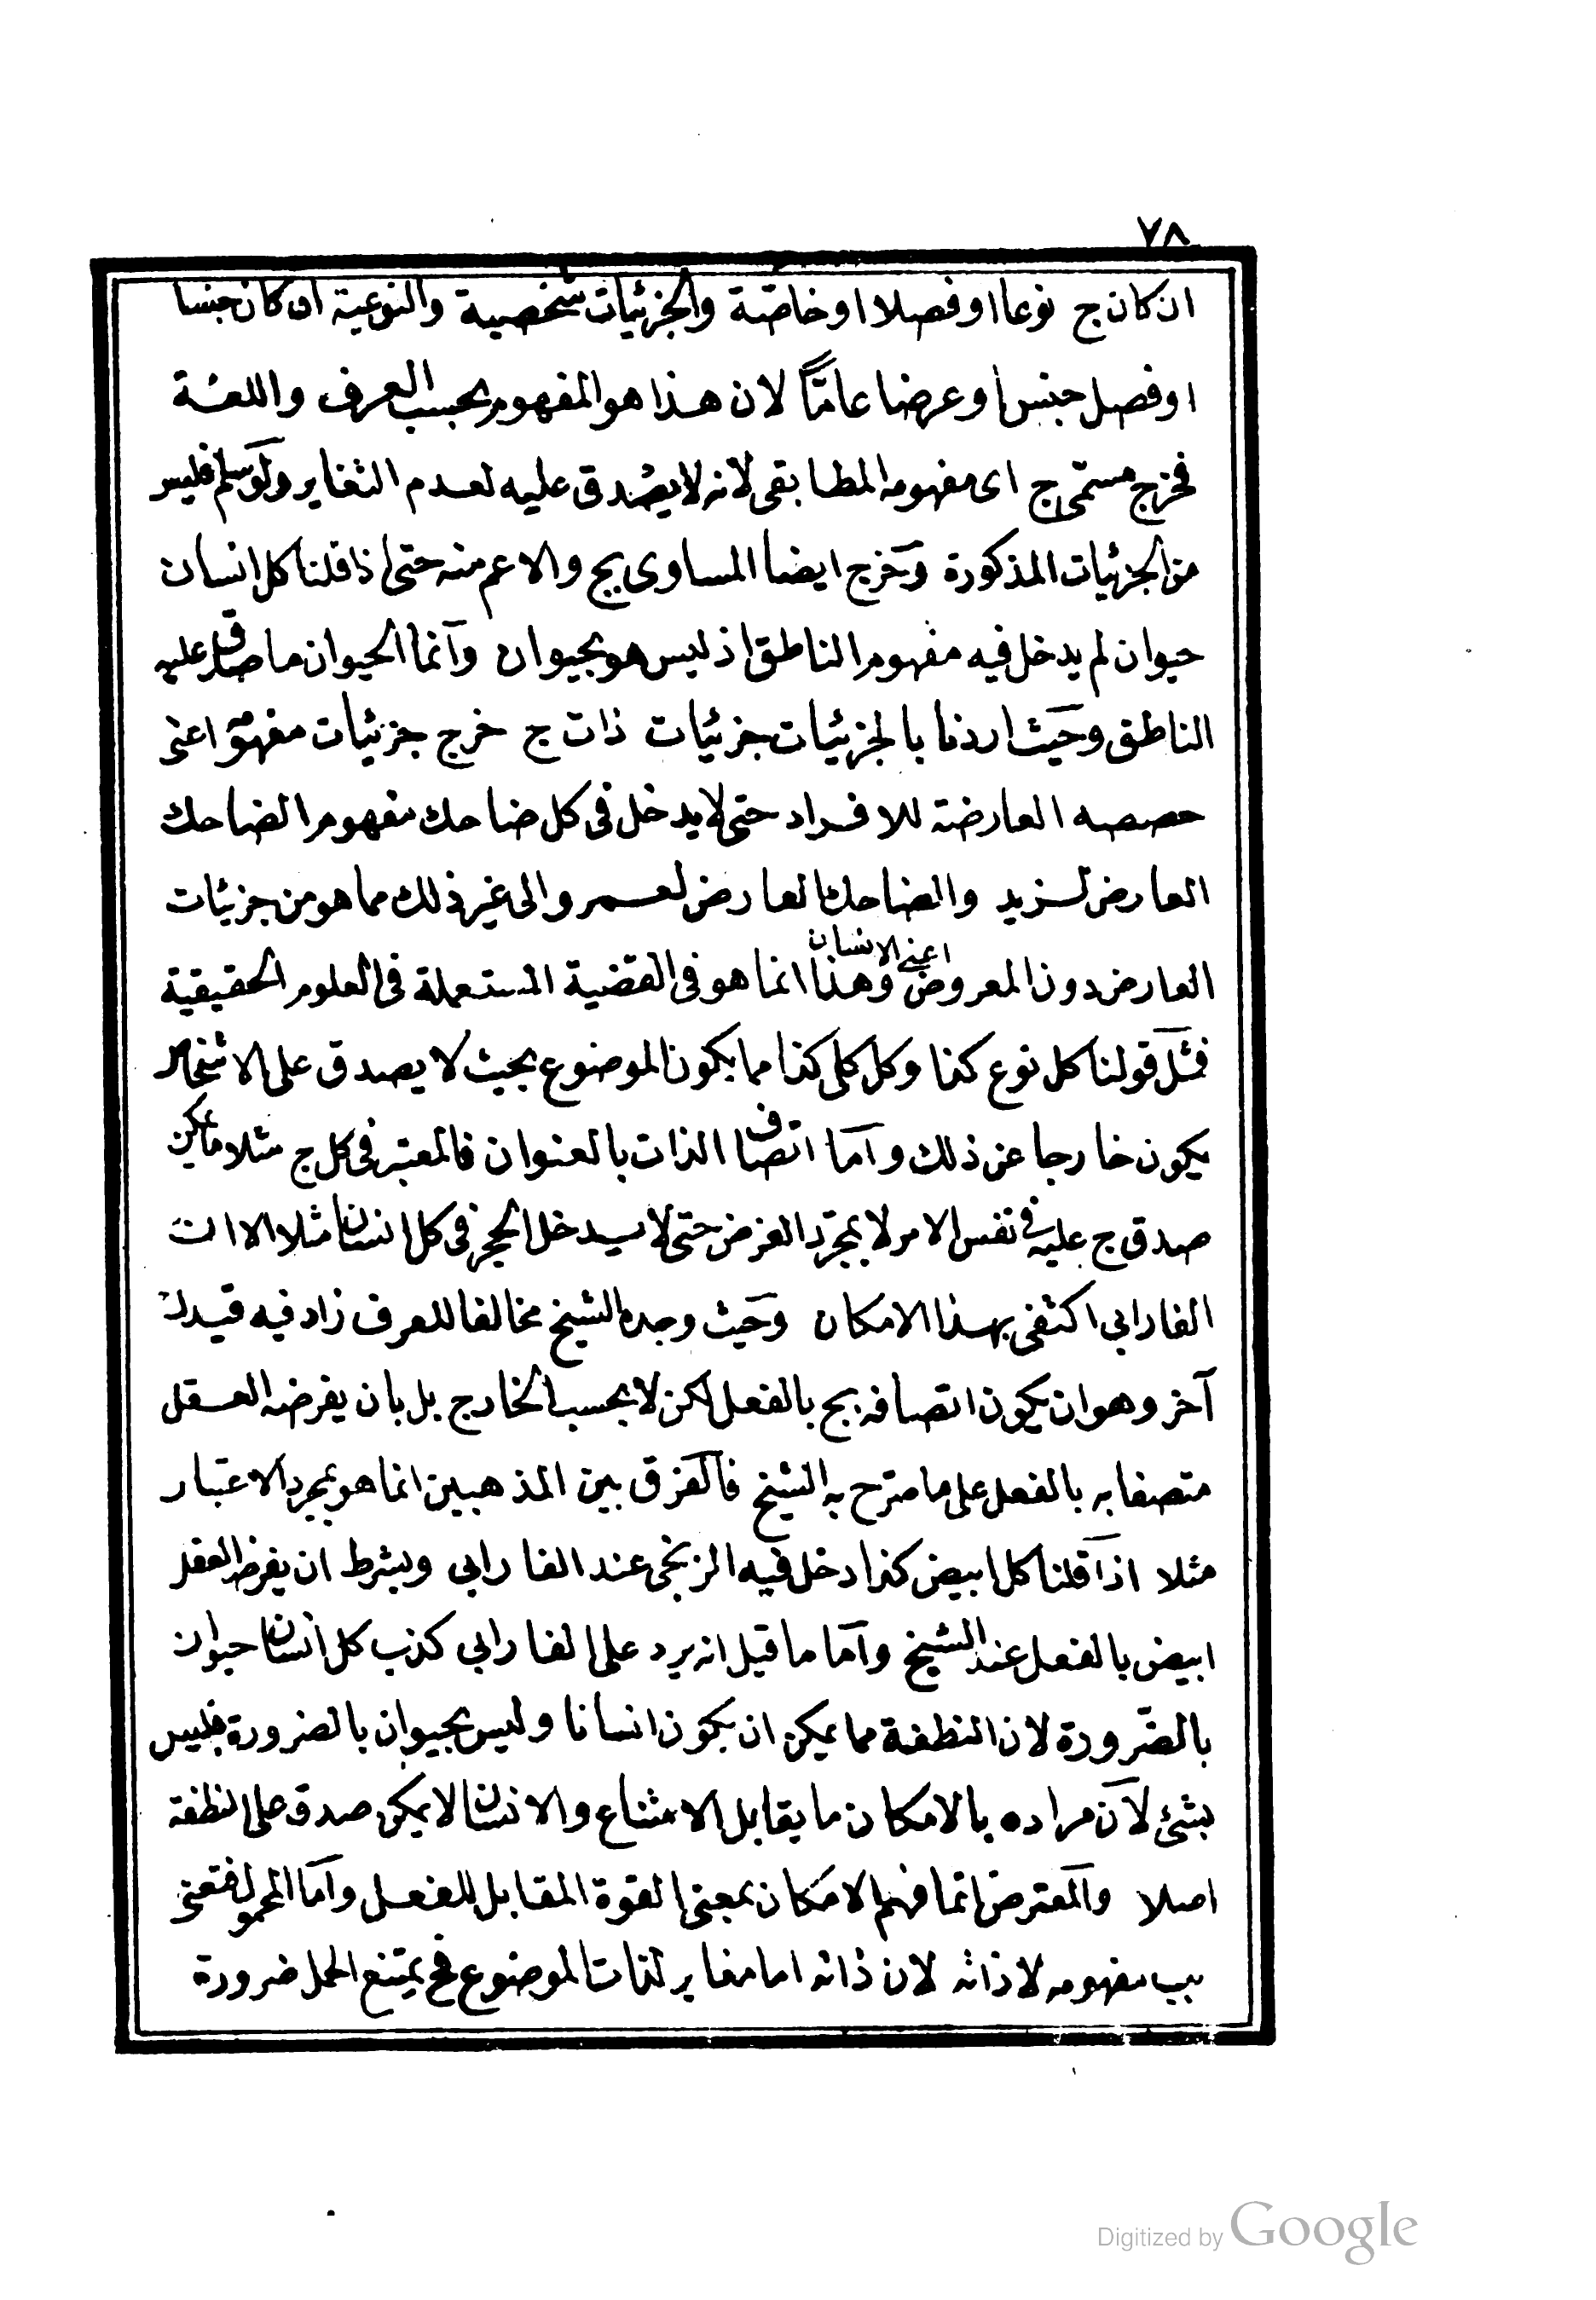 ٧٨
ان كان ج نوعا او فصلا او خاصّة والجزئيات شخصية والنوعية ان كان جنسا
او فصل جنس او عرضا عامّاً لان هذا هو المفهوم بحسب العرف واللغة
فخرج مسمّى ج اى مفهومه المطابقى لانه لا يصدق عليه لعدم التغاير ولو سلم فليس
من الجزئيات المذكورة وخرج ايضا المساوى بج والاعم منه حتى اذا قلنا كل انسان
حيوان لم يدخل فيه مفهوم الناطق اذ ليس هو بحيوان وانما الحيوان ما صدق عليه
الناطق وحيث اردنا بالجزئيات جزئيات ذات ج خرج جزئيات مفهومه اعنى
حصصه العارضة للافراد حتى لا يدخل فى كل ضاحك مفهوم الضاحك
العارض لزيد والضاحك العارض لعمر والى غير ذلك مما هو من جزئيات
اعنى الانسان
العارض دون المعروض وهذا انما هو فى القضية المستعملة فى العلوم الحقيقية
فمثل قولنا كل نوع كذا وكل كلى كذا مما يكون الموضوع بحيث لا يصدق على الاشخاص
يكون خارجا عن ذلك وامّا اتصاف الذات بالعنوان فالمعتبر فى كل ج مثلا ما يمكن
صدق ج عليه فى نفس الامر لا بمجرّد الفرض حتى لا يدخل الحجر فى كل انسان مثلا الا ان
الفارابى اكتفى بهذا الامكان وحيث وجده الشيخ مخالفا للعرف زاد فيه قيدا
آخر وهو ان يكون اتصافه بج بالفعل لكن لا بحسب الخارج بل بان يفرضه العقل
متصفا به بالفعل على ما صرّح به الشيخ فالفرق بين المذهبين انما هو بمجرد الاعتبار
مثلا اذا قلنا كل ابيض كذا دخل فيه الزنجى عند الفارابى وبشرط ان يفرضه العقل
ابيض بالفعل عند الشيخ وامّا ما قيل انه يرد على الفارابى كذب كل انسان حيوان
بالضّرورة لان النطفة مما يمكن ان يكون انسانا وليس بحيوان بالضرورة فليس
بشئ لان مراده بالامكان ما يقابل الامتناع والانسان لا يمكن صدق على النطفة
اصلا والمعترض انما فهم الامكان بمعنى القوة المقابل للفعل وامّا المحمول فتعنى
بب مفهومه لا ذاته لان ذاته اما مغاير لذات الموضوع فح يمتنع الحمل ضرورة
Digitized by Google